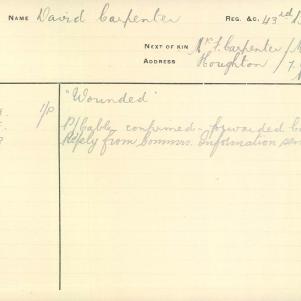 NAME David Carpenter REG. &c. 43rd
NEXT OF KIN Mr F. Carpenter /
ADDRESS Houghton /
1/P "Wounded"
P/Cable confirmed - forwarded
Reply from Commrs. Information